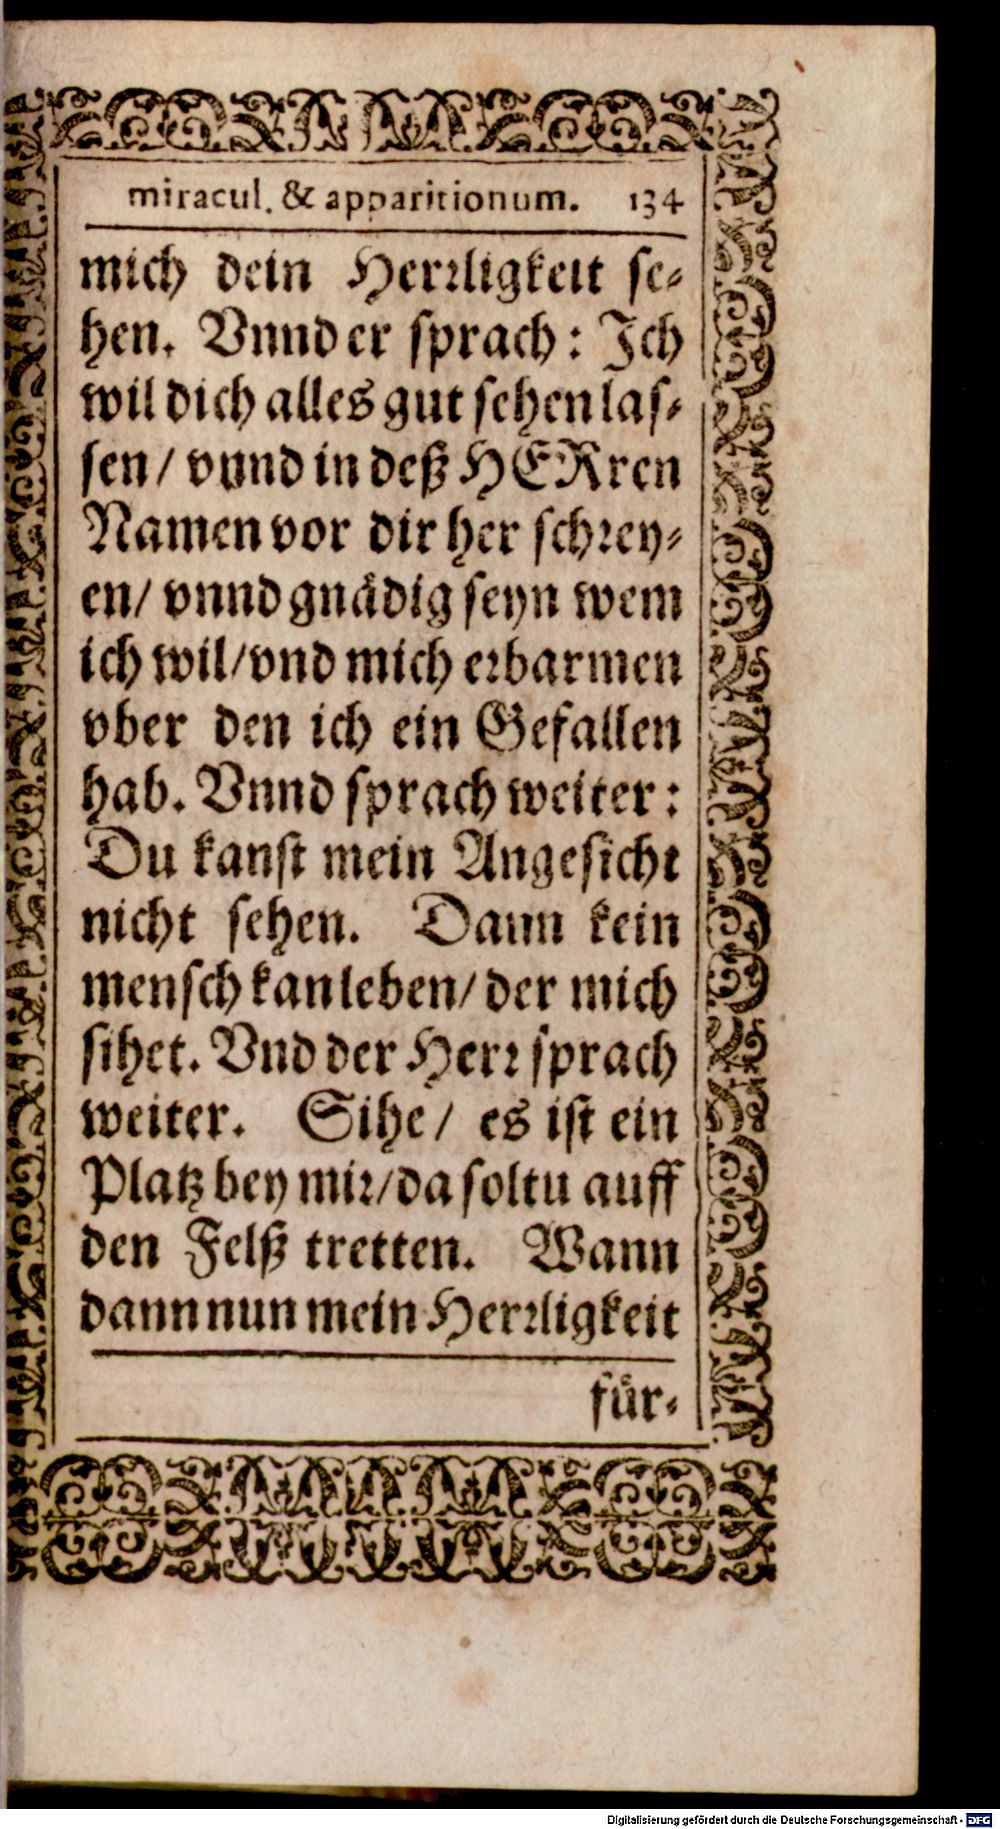 miracul. & apparitionum. 134
mich dein Herrligkeit se-
hen. Vnnd er sprach: Ich
wil dich alles gut sehen las-
sen/ vnnd in deß HERren
Namen vor dir her schrey-
en/ vnnd gnådig seyn wem
ich wil/vnd mich erbarmen
vber den ich ein Gefallen
hab. Vnnd sprach weiter:
Du kanst mein Angesicht
nicht sehen. Dann kein
mensch kan leben/ der mich
sihet. Vnd der Herr sprach
weiter. Sihe/ es ist ein
Platz bey mir/da soltu auff
den Felß tretten. Wann
dann nun mein Herrligkeit
fůr-
Digitalisierung gefördert durch die Deutsche Forschungsgemeinschaft - DFG